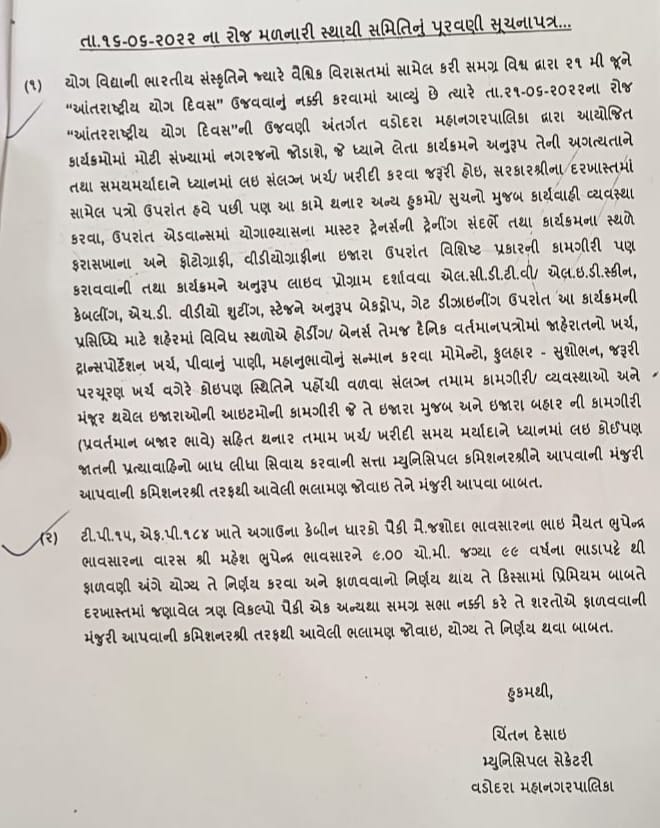 તા.૧૬-૦૬-૨૦૨૨ ના રોજ મળનારી સ્થાયી સમિતિનું પૂરવણી સૂચનાપત્ર...
(૧) યોગ વિદ્યાની ભારતીય સંસ્કૃતિને જ્યારે વૈશ્વિક વિરાસતમાં સામેલ કરી સમગ્ર વિશ્વ દ્વારા ૨૧ મી જૂને
"આંતરાષ્ટ્રીય યોગ દિવસ" ઉજવવાનું નક્કી કરવામાં આવ્યું છે ત્યારે તા.૨૧-૦૬-૨૦૨૨ના રોજ
"આંતરરાષ્ટ્રીય યોગ દિવસ"ની ઉજવણી અંતર્ગત વડોદરા મહાનગરપાલિકા દ્વારા આયોજિત
કાર્યક્રમોમાં મોટી સંખ્યામાં નગરજનો જોડાશે, જે ધ્યાને લેતા કાર્યક્રમને અનુરૂપ તેની અગત્યતાને
તથા સમયમર્યાદાને ધ્યાનમાં લઇ સંલગ્ન ખર્ચ/ ખરીદી કરવા જરૂરી હોઇ, સરકારશ્રીના દરખાસ્તમાં
સામેલ પત્રો ઉપરાંત હવે પછી પણ આ કામે થનાર અન્ય હુકમો/ સુચનો મુજબ કાર્યવાહી વ્યવસ્થા
કરવા, ઉપરાંત એડવાન્સમાં યોગાભ્યાસના માસ્ટર ટ્રેનર્સની ટ્રેનીંગ સંદર્ભે તથા કાર્યક્રમના સ્થળે
ફરાસખાના અને ફોટોગ્રાફી, વીડીયોગ્રાફીના ઇજારા ઉપરાંત વિશિષ્ટ પ્રકારની કામગીરી પણ
કરાવવાની તથા કાર્યક્રમને અનુરૂપ લાઇવ પ્રોગ્રામ દર્શાવવા એલ.સી.ડી.ટી.વી/ એલ.ઇ.ડી.સ્ક્રીન,
કેબલીંગ, એચ.ડી. વીડીયો શુટીંગ, સ્ટેજને અનુરૂપ બેકડ્રોપ, ગેટ ડીઝાઇનીંગ ઉપરાંત આ કાર્યક્રમની
પ્રસિધ્ધિ માટે શહેરમાં વિવિધ સ્થળોએ હોર્ડીંગ/ બેનર્સ તેમજ દૈનિક વર્તમાનપત્રોમાં જાહેરાતનો ખર્ચ,
ટ્રાન્સપોર્ટેશન ખર્ચ, પીવાનું પાણી, મહાનુભાવોનું સન્માન કરવા મોમેન્ટો, ફુલહાર - સુશોભન, જરૂરી
પરચૂરણ ખર્ચ વગેરે કોઇપણ સ્થિતિને પહોંચી વળવા સંલગ્ન તમામ કામગીરી/ વ્યવસ્થાઓ અને
મંજૂર થયેલ ઇજારાઓની આઇટમોની કામગીરી જે તે ઇજારા મુજબ અને ઇજારા બહાર ની કામગીરી
(પ્રવર્તમાન બજાર ભાવે) સહિત થનાર તમામ ખર્ચ/ ખરીદી સમય મર્યાદાને ધ્યાનમાં લઇ કોઈપણ
જાતની પ્રત્યાવાહિનો બાધ લીધા સિવાય કરવાની સત્તા મ્યુનિસિપલ કમિશનરશ્રીને આપવાની મંજુરી
આપવાની કમિશનરશ્રી તરફથી આવેલી ભલામણ જોવાઇ તેને મંજુરી આપવા બાબત.
(૨) ટી.પી.૧૫, એફ.પી.૧૮૪ ખાતે અગાઉના કેબીન ધારકો પૈકી મે.જશોદા ભાવસારના ભાઇ મૈયત ભુપેન્દ્ર
ભાવસારના વારસ શ્રી મહેશ ભુપેન્દ્ર ભાવસારને ૯.૦૦ ચો.મી. જગ્યા ૯૯ વર્ષના ભાડાપટે થી
ફાળવણી અંગે યોગ્ય તે નિર્ણય કરવા અને ફાળવવાનો નિર્ણય થાય તે કિસ્સામાં પ્રિમિયમ બાબતે
દરખાસ્તમાં જણાવેલ ત્રણ વિકલ્પો પૈકી એક અન્યથા સમગ્ર સભા નક્કી કરે તે શરતોએ ફાળવવાની
મંજુરી આપવાની કમિશનરશ્રી તરફથી આવેલી ભલામણ જોવાઇ, યોગ્ય તે નિર્ણય થવા બાબત.
હુકમથી,
ચિંતન દેસાઇ
મ્યુનિસિપલ સેક્રેટરી
વડોદરા મહાનગરપાલિકા